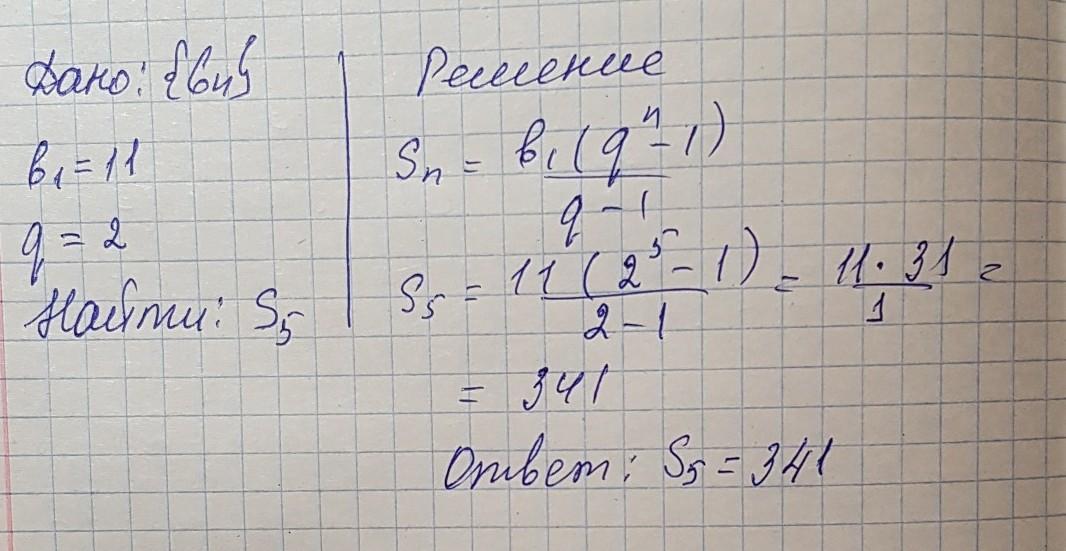 Дано: {bn}
b₁ = 11
q = 2
Найти: S₅
Решение
Sₙ = b₁(qⁿ - 1) / q - 1
S₅ = 11(2⁵ - 1) / 2 - 1 = 11 · 31 / 1 =
= 341
Ответ: S₅ = 341